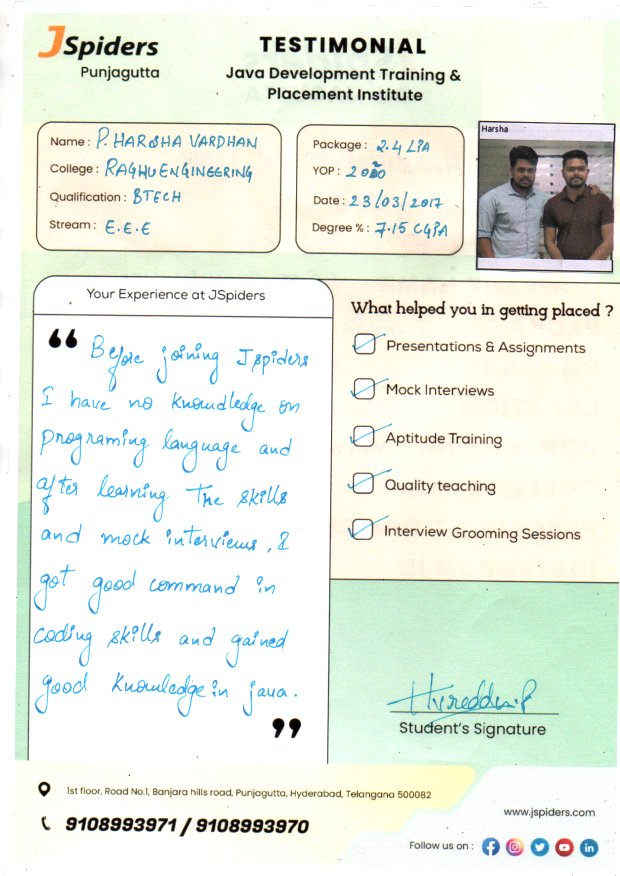 JSpiders
Punjagutta
TESTIMONIAL
Java Development Training &
Placement Institute
Name : P. HARSHA VARDHAN
College : RAGHU ENGINEERING
Qualification : BTECH
Stream : E.E.E
Package : 2.4 LPA
YOP : 2020
Date : 23/03/2017
Degree % : 7.15 CGPA
Harsha
Your Experience at JSpiders
“ Before joining Jspiders
I have no knowdledge on
programing language and
after learning The skills
and mock interviews, I
got good command in
coding skills and gained
good knowledge in java.
”
What helped you in getting placed ?
Presentations & Assignments
Mock Interviews
Aptitude Training
Quality teaching
Interview Grooming Sessions
Student's Signature
1st floor, Road No.1, Banjara hills road, Punjagutta, Hyderabad, Telangana 500082
9108993971 / 9108993970
www.jspiders.com
Follow us on :